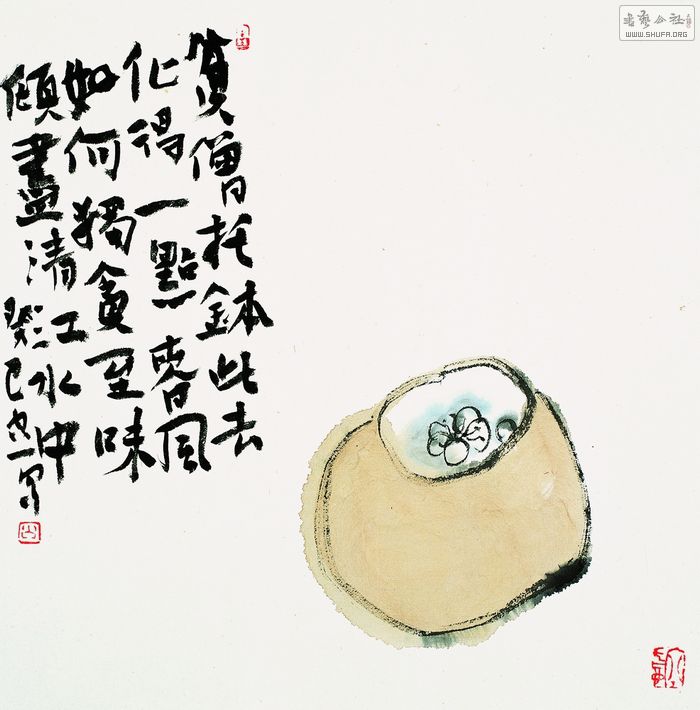 貧僧托鉢此去
化得一點春風
如何獨貪至味
傾盡清江水中
癸巳
書藝公社
WWW.SHUFA.ORG